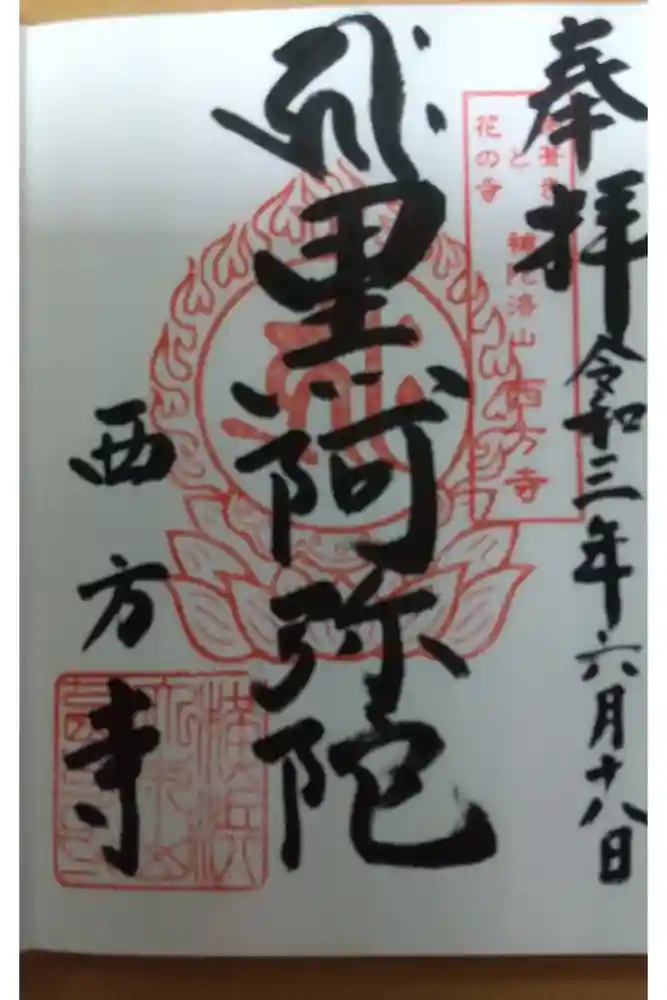 奉拝
令和三年六月十八日
花の寺
と
補陀洛山 西方寺
黒阿弥陀
西方寺